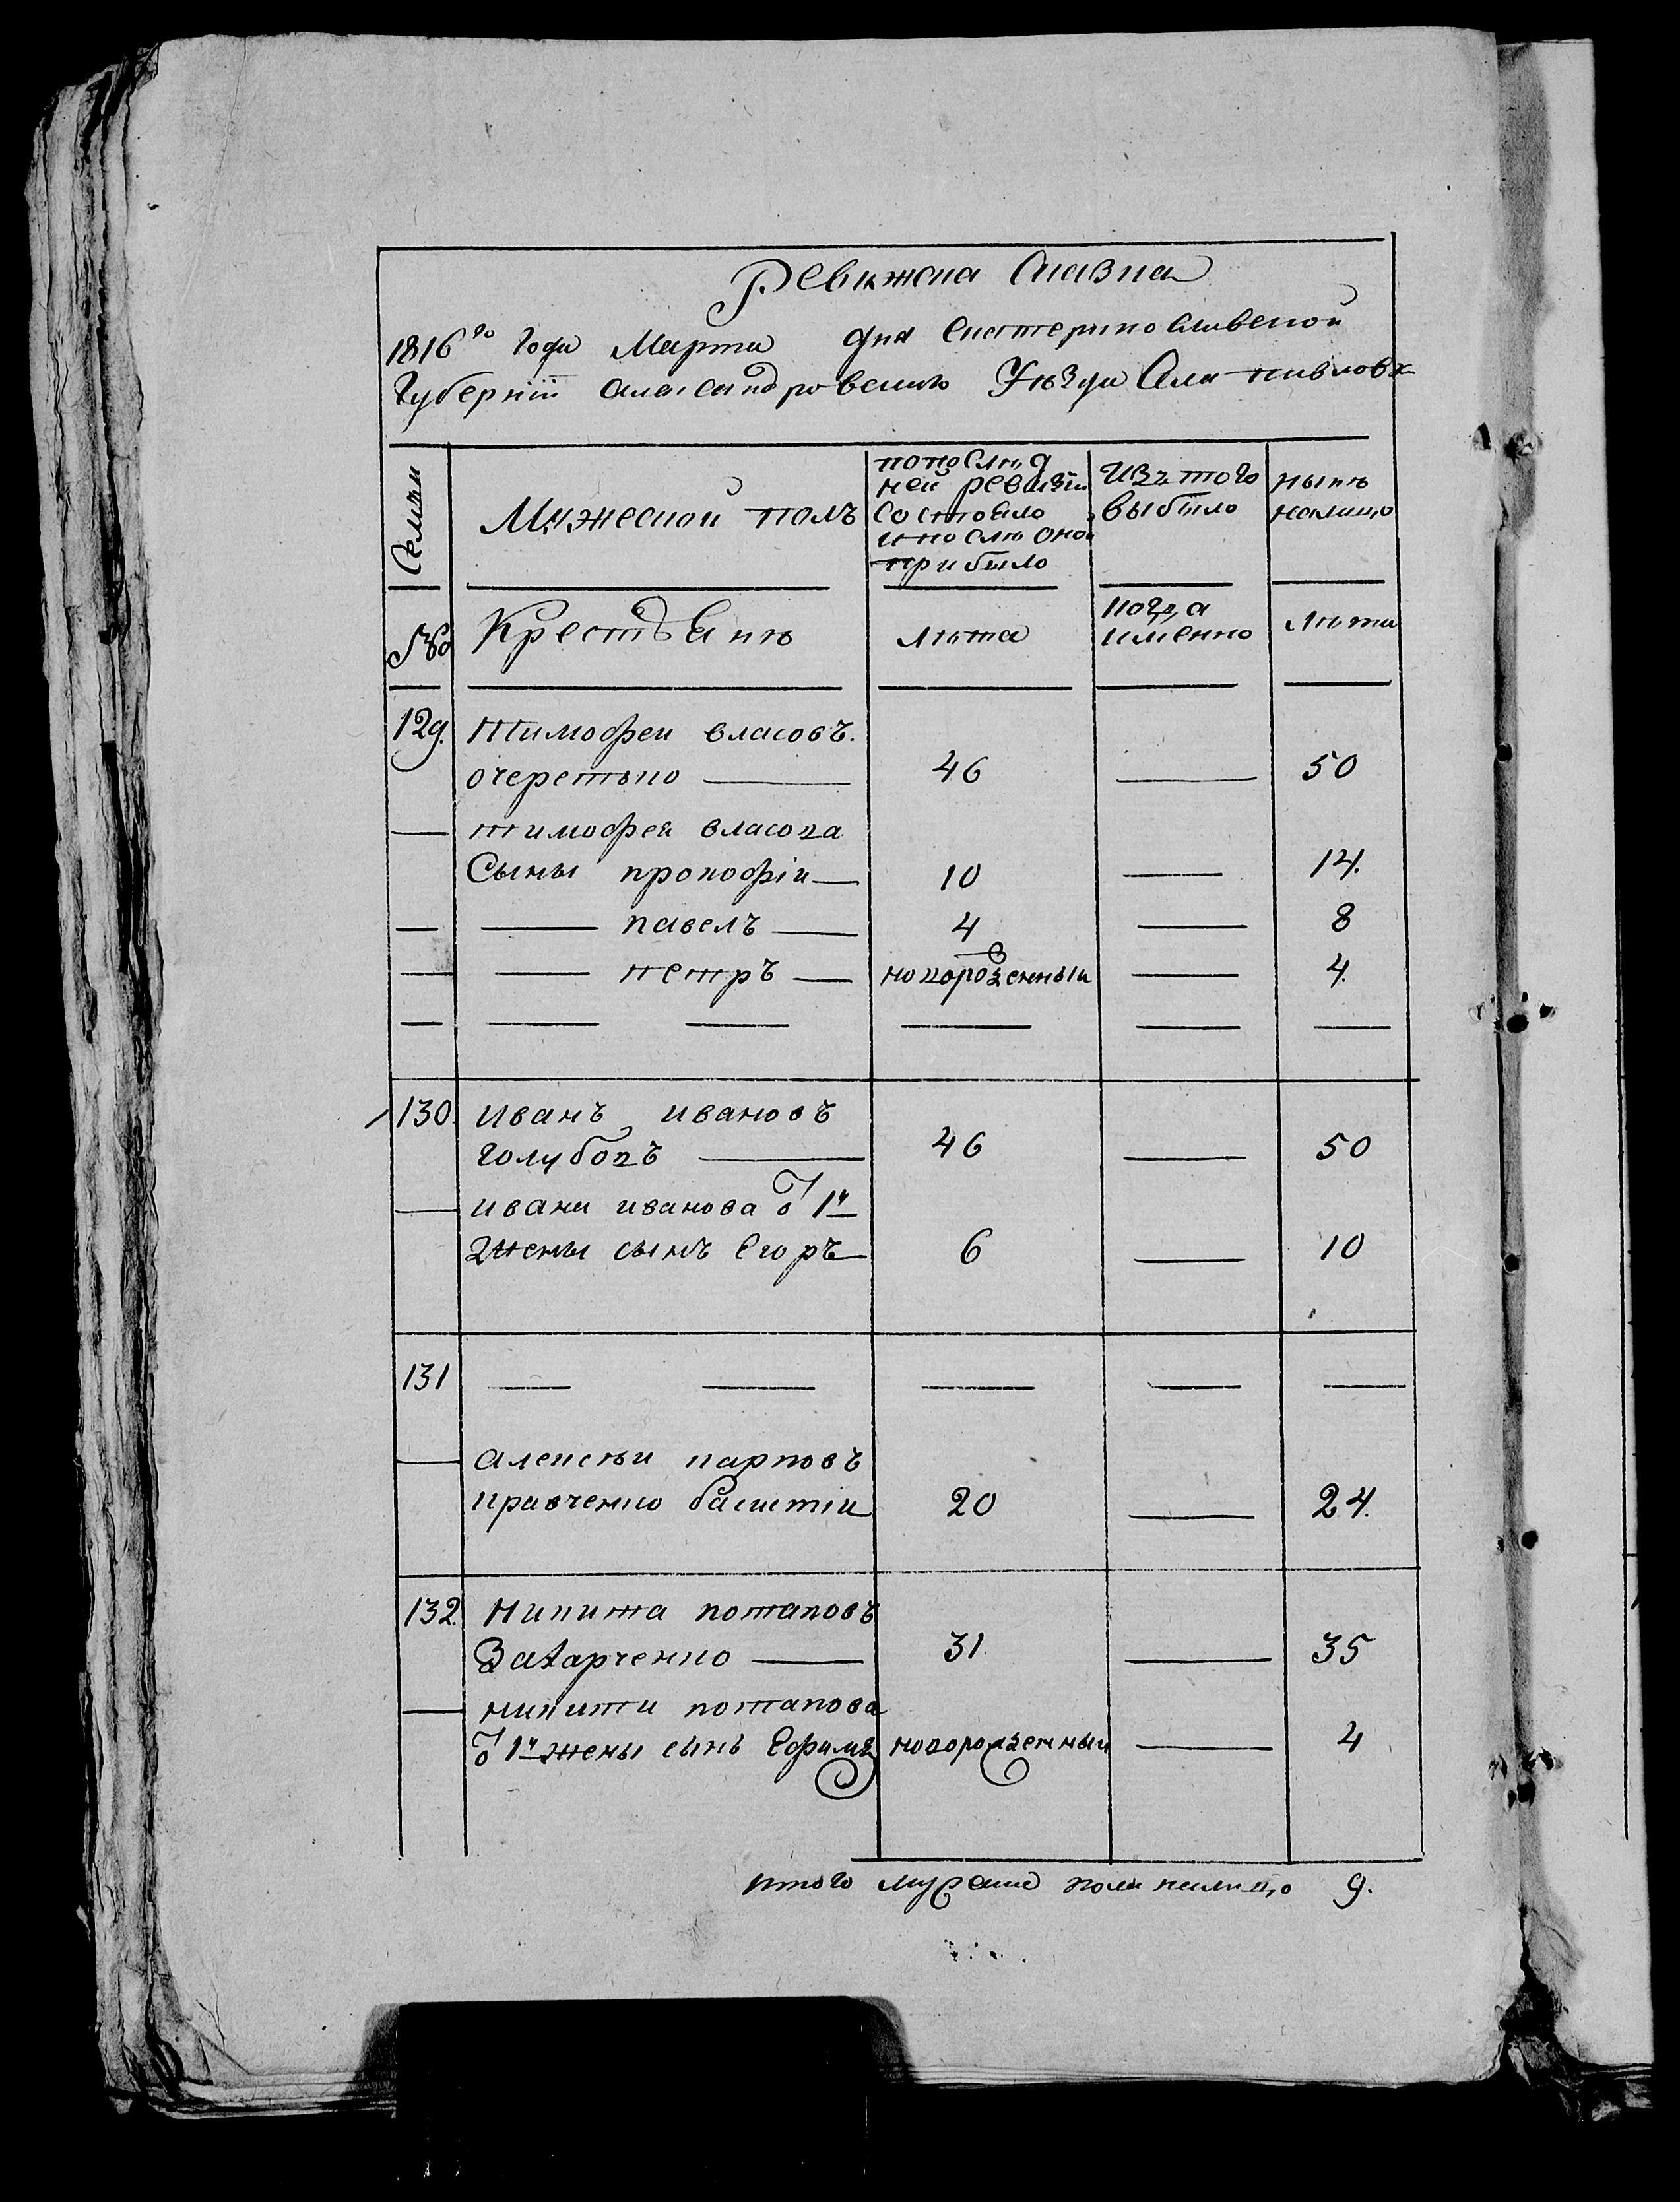 Ревижска Сказка
1816го Года Марта дня Екатеринославской
Губернiи Александровскаго Уѣзда Села павловк
Семьи
Мужеской полъ
по послѣд
ней ревизiи
состояло
и послѣ оной
прибыло
Изъ того
выбыло
нынѣ
налицо
№
Крестьянѣ
лѣта
когда
именно
лѣта
129. Тимофеи власовъ.
очеретько — 46 — 50
— тимофея власова
Сыны прокофiи — 10 — 14.
— — павелъ — 4 — 8
— — петръ — новорожденныи — 4.
— — — — — —
130. Иванъ ивановъ
Голубовъ — 46 — 50
— ивана иванова от 1й
жены сынъ Егоръ 6 — 10
131 — — — — —
— алексѣи карповъ
кравченко баситiи 20 — 24.
132. Никита потаповъ
Захарченко — 31. — 35
— никиты потапова
от 1й жены сынъ Ефимъ новорожденныи — 4
итого мужска пола налицо 9.